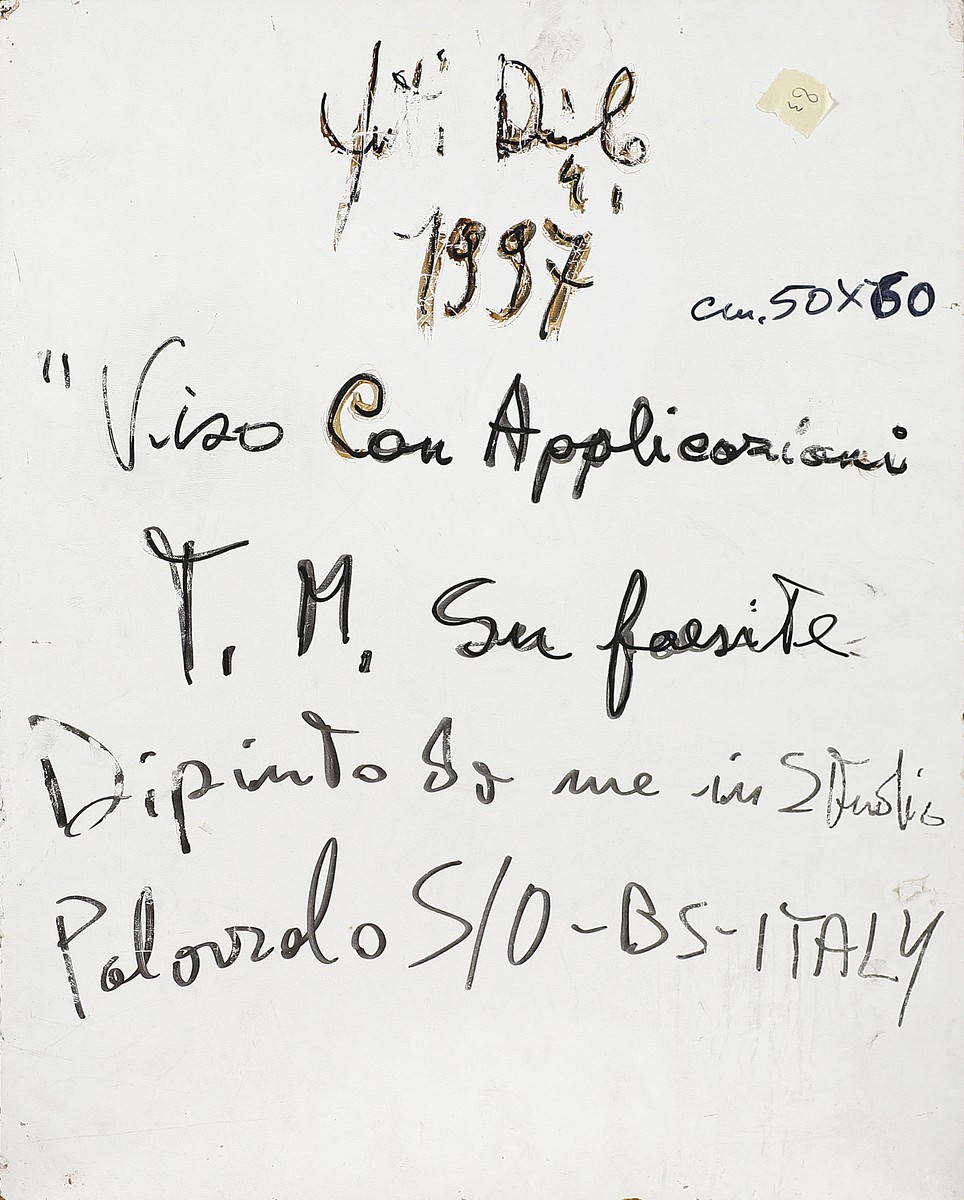 1997
cm. 50X60
"Viso Con Applicazioni
T. M. Su faesite
Dipinto Da me in Studio
Palazzolo S/O - BS - ITALY